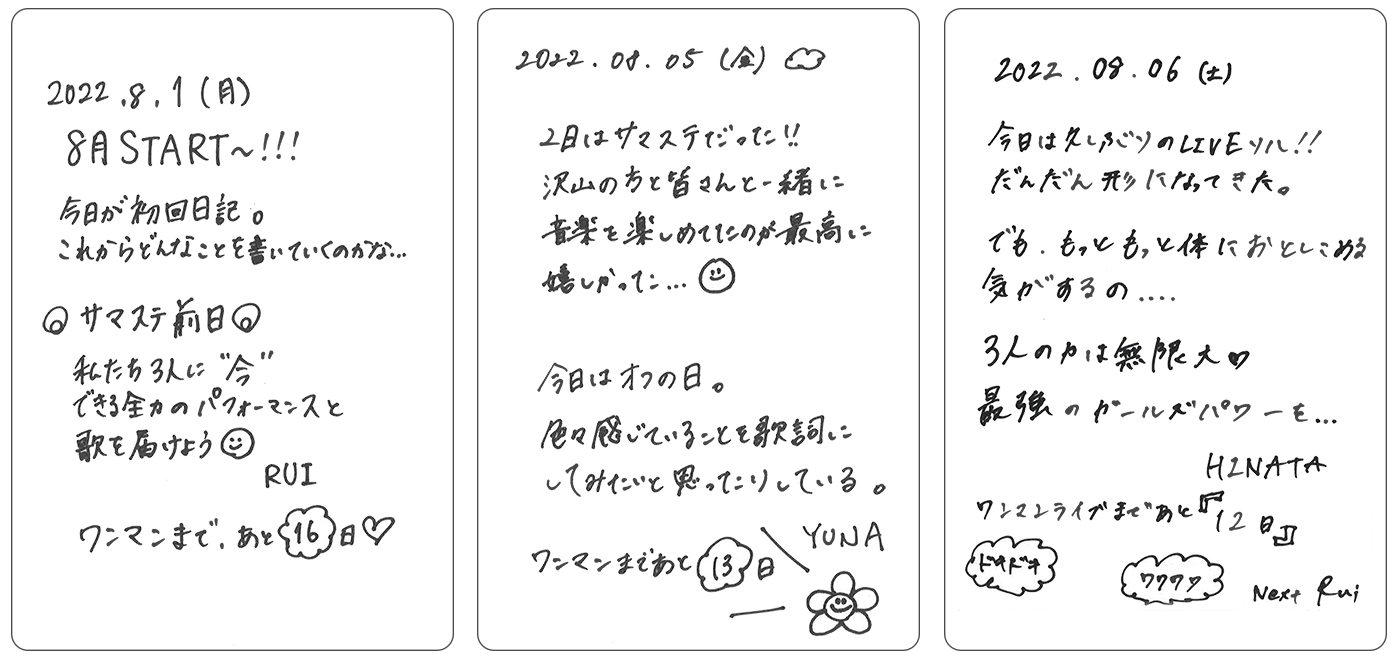 2022.8.1(月)
8月START〜!!!
今日が初回日記。
これからどんなことを書いていくのかな...
◎サマステ前日◎
私たち3人に“今”
できる全力のパフォーマンスと
歌を届けよう
RUI
ワンマンまで、あと16日♡
2022.08.05(金)
2日はサマステだった!!
沢山の方と皆さんと一緒に
音楽を楽しめてたのが最高に
嬉しかった...
今日はオフの日。
色々感じていることを歌詞に
してみたいと思ったりしている。
YUNA
ワンマンまであと13日
2022.08.06(土)
今日は久しぶりのLIVEリハ!!
だんだん形になってきた。
でも、もっともっと体におとしこめる
気がするの....
3人の力は無限大♥
最強のガールズパワーを...
HINATA
ワンマンライブまであと『12日』
ドキドキ
ワクワク
Next Rui